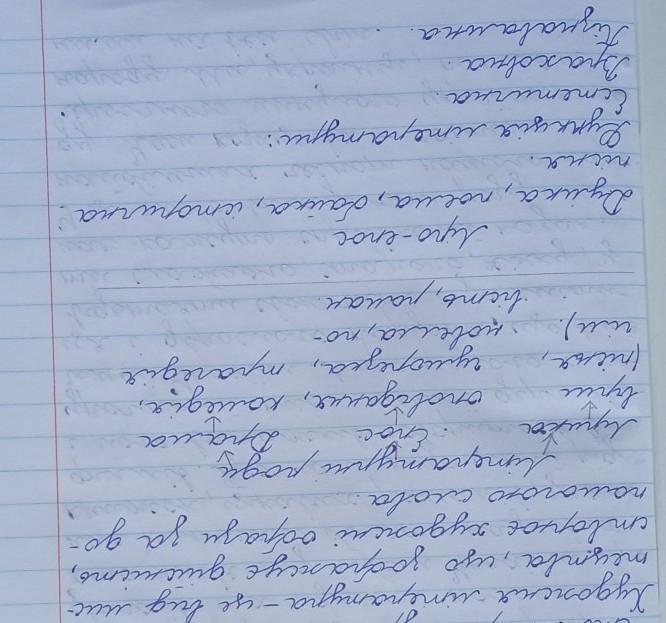 Художня література – це вид мис-
тецтва, що зображує дійсність,
створює художні образи за до-
помогою слова.
Літературні роди
Лірика Епос Драма
вірш оповідання, комедія,
(пісня, гуморезка, трагедія
новела, по-
вість, роман.
Ліро-епос
Думка, поема, байка, історична
пісня.
Функція літератури:
Естетична.
Пізнавальна.